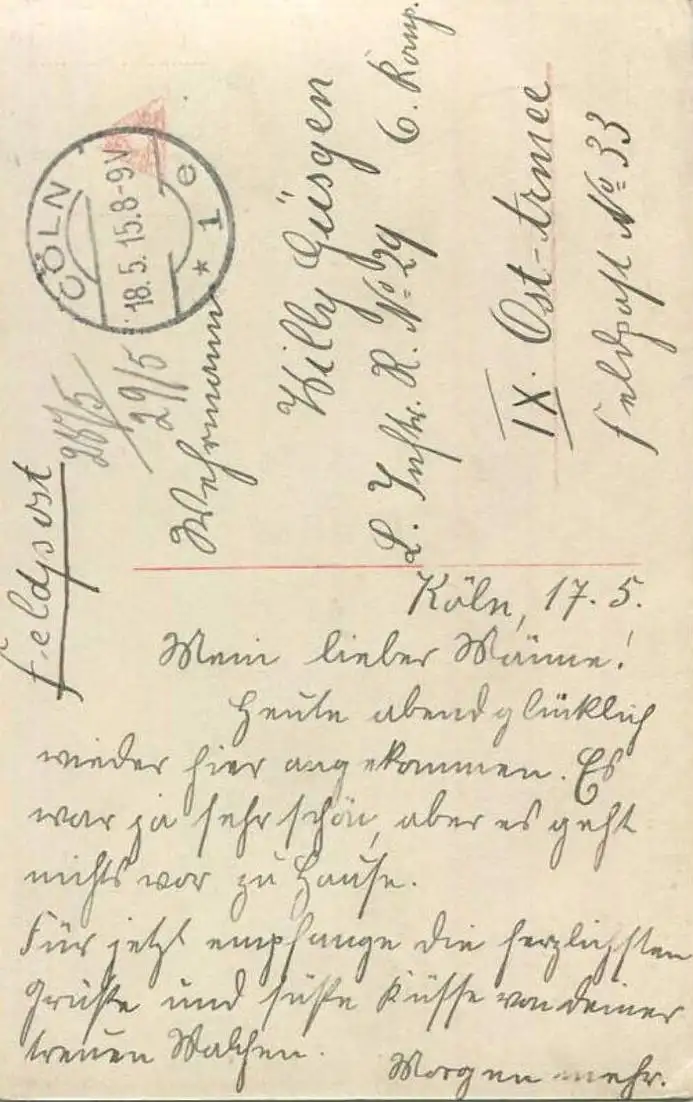 Feldpost
28/5
29/5
CÖLN
18.5.15.8-9V
* 1 e
Wehrmann
Willy Güsgen
L. Inftr. R. No 29 6. Komp.
IX. Ost-Armee
Feldpost No 33
Köln, 17. 5.
Mein lieber Männe!
Heute abend glücklich
wieder hier angekommen. Es
war ja sehr schön, aber es geht
nichts vor zu Hause.
Für jetzt empfange die herzlichsten
Grüße und süße Küsse von deiner
treuen Malchen.
Morgen mehr.